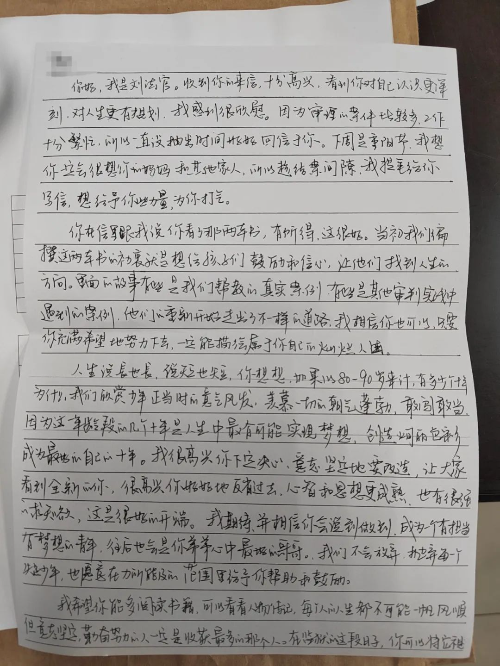 你好，我是刘法官。收到你的来信，十分高兴，看到你对自己认识更深
刻，对人生更有规划，我感到很欣慰。因为审理的案件比较多，工作
十分繁忙，所以一直没抽出时间好好回信于你。下周是重阳节，我想
你一定会很想你的妈妈和其他家人，所以趁结案间隙，我提笔给你
写信，想给予你些力量，为你打气。
你在信里跟我说你看了那两本书，有所得，这很好。当初我们编
撰这两本书的初衷就是想给孩子们鼓励和信心，让他们找到人生的
方向。里面的故事有些是我们帮教的真实案例，有些是其他审判实践中
遇到的案例，他们从重新开始走出了不一样的道路，我相信你也可以，只要
你充满希望地努力下去，一定能描绘属于你自己的灿烂人生。
人生说长也长，说短也短，你想想，如果以80-90岁来计，有多少个十年
为什么我们欣赏少年正当时的意气风发，羡慕一切的朝气蓬勃，敢闯敢当，
因为这一年龄段的几个十年是人生中最有可能实现梦想，创造
成为最好的自己的十年。我很高兴你下定决心，意志坚定地要改造，让大家
看到全新的你，很高兴你好好地反省过去，心智和思想更成熟，也有很强
的求知欲，这是很好的开端。我期待并相信你会说到做到，成为一个有担当
有梦想的青年，往后也会是你弟弟心中最好的哥哥。我们不会放弃
少年，也愿意在力所能及的范围里给予你帮助和鼓励。
我希望你能多阅读书籍，可以看看人物传记，每个人的人生都不可能一帆风顺
但意志坚定，勤奋努力的人一定是收获最多的那个人。在监狱的这段日子，你可以将它